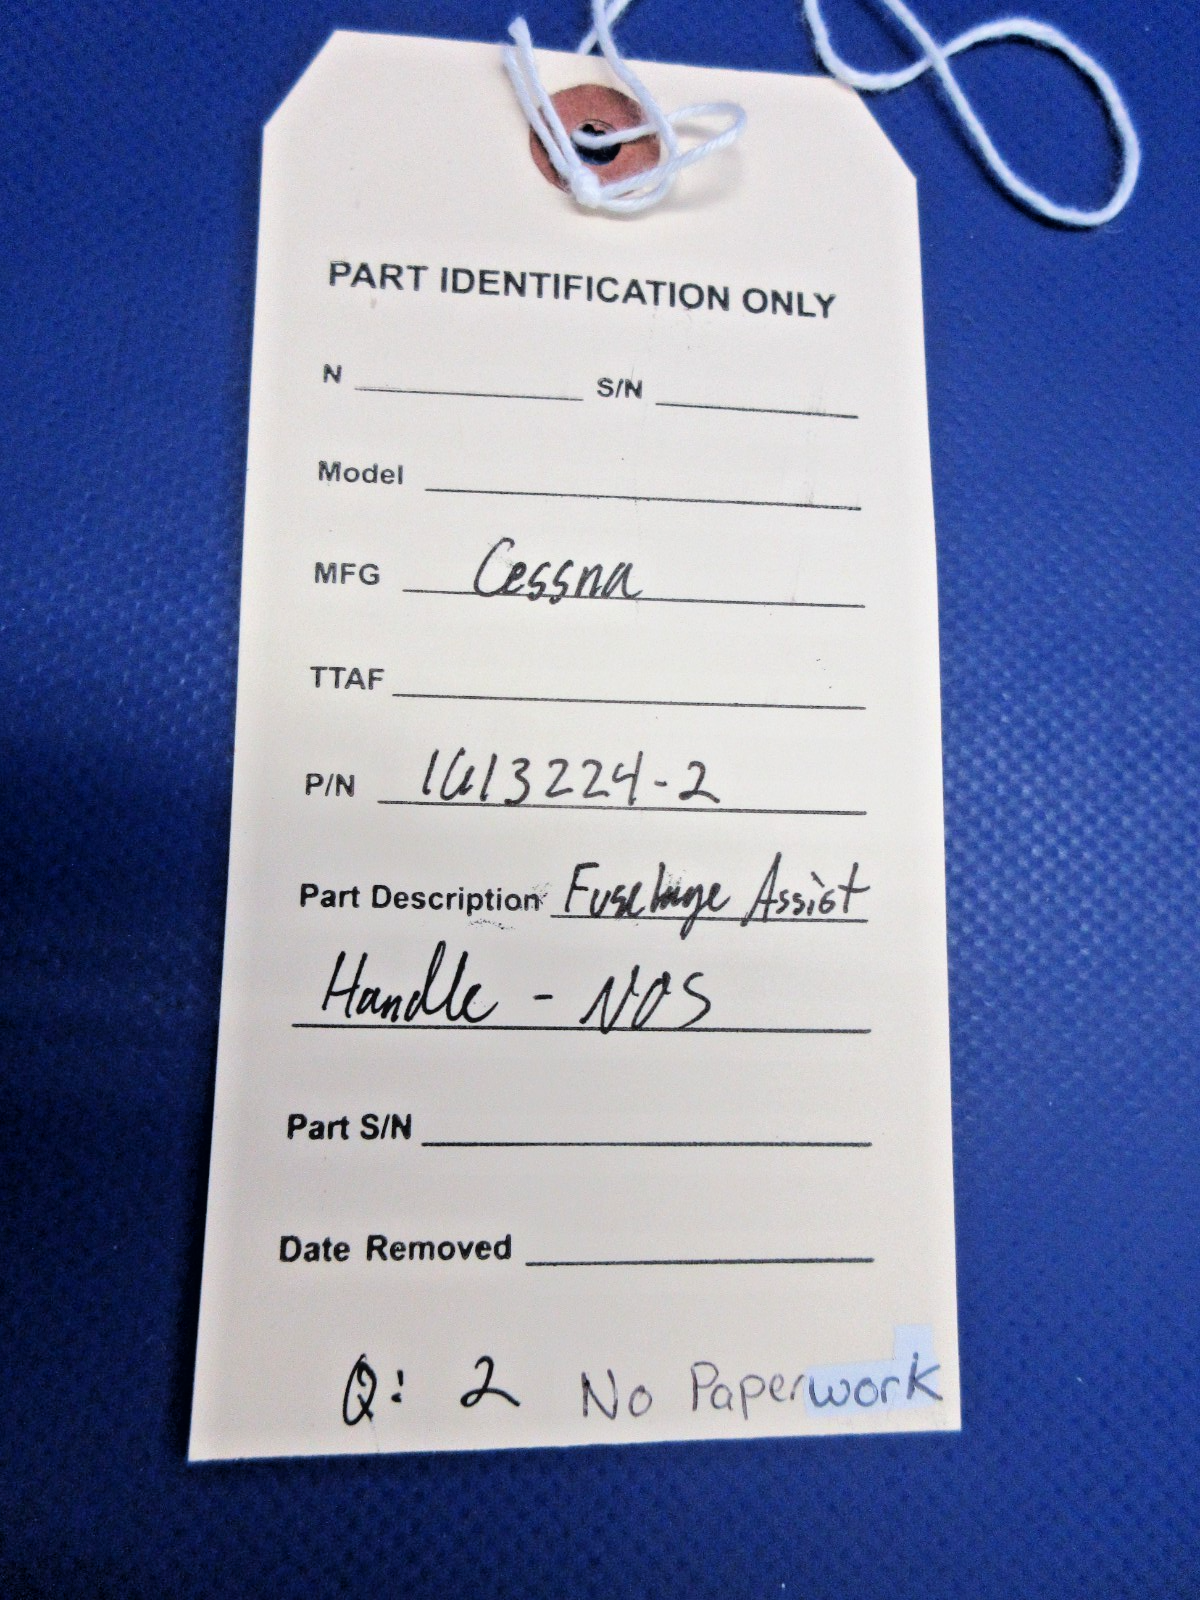 PART IDENTIFICATION ONLY
N S/N
Model
MFG Cessna
TTAF
P/N 1613224-2
Part Description Fuselage Assist
Handle - NOS
Part S/N
Date Removed
Q: 2 No Paperwork